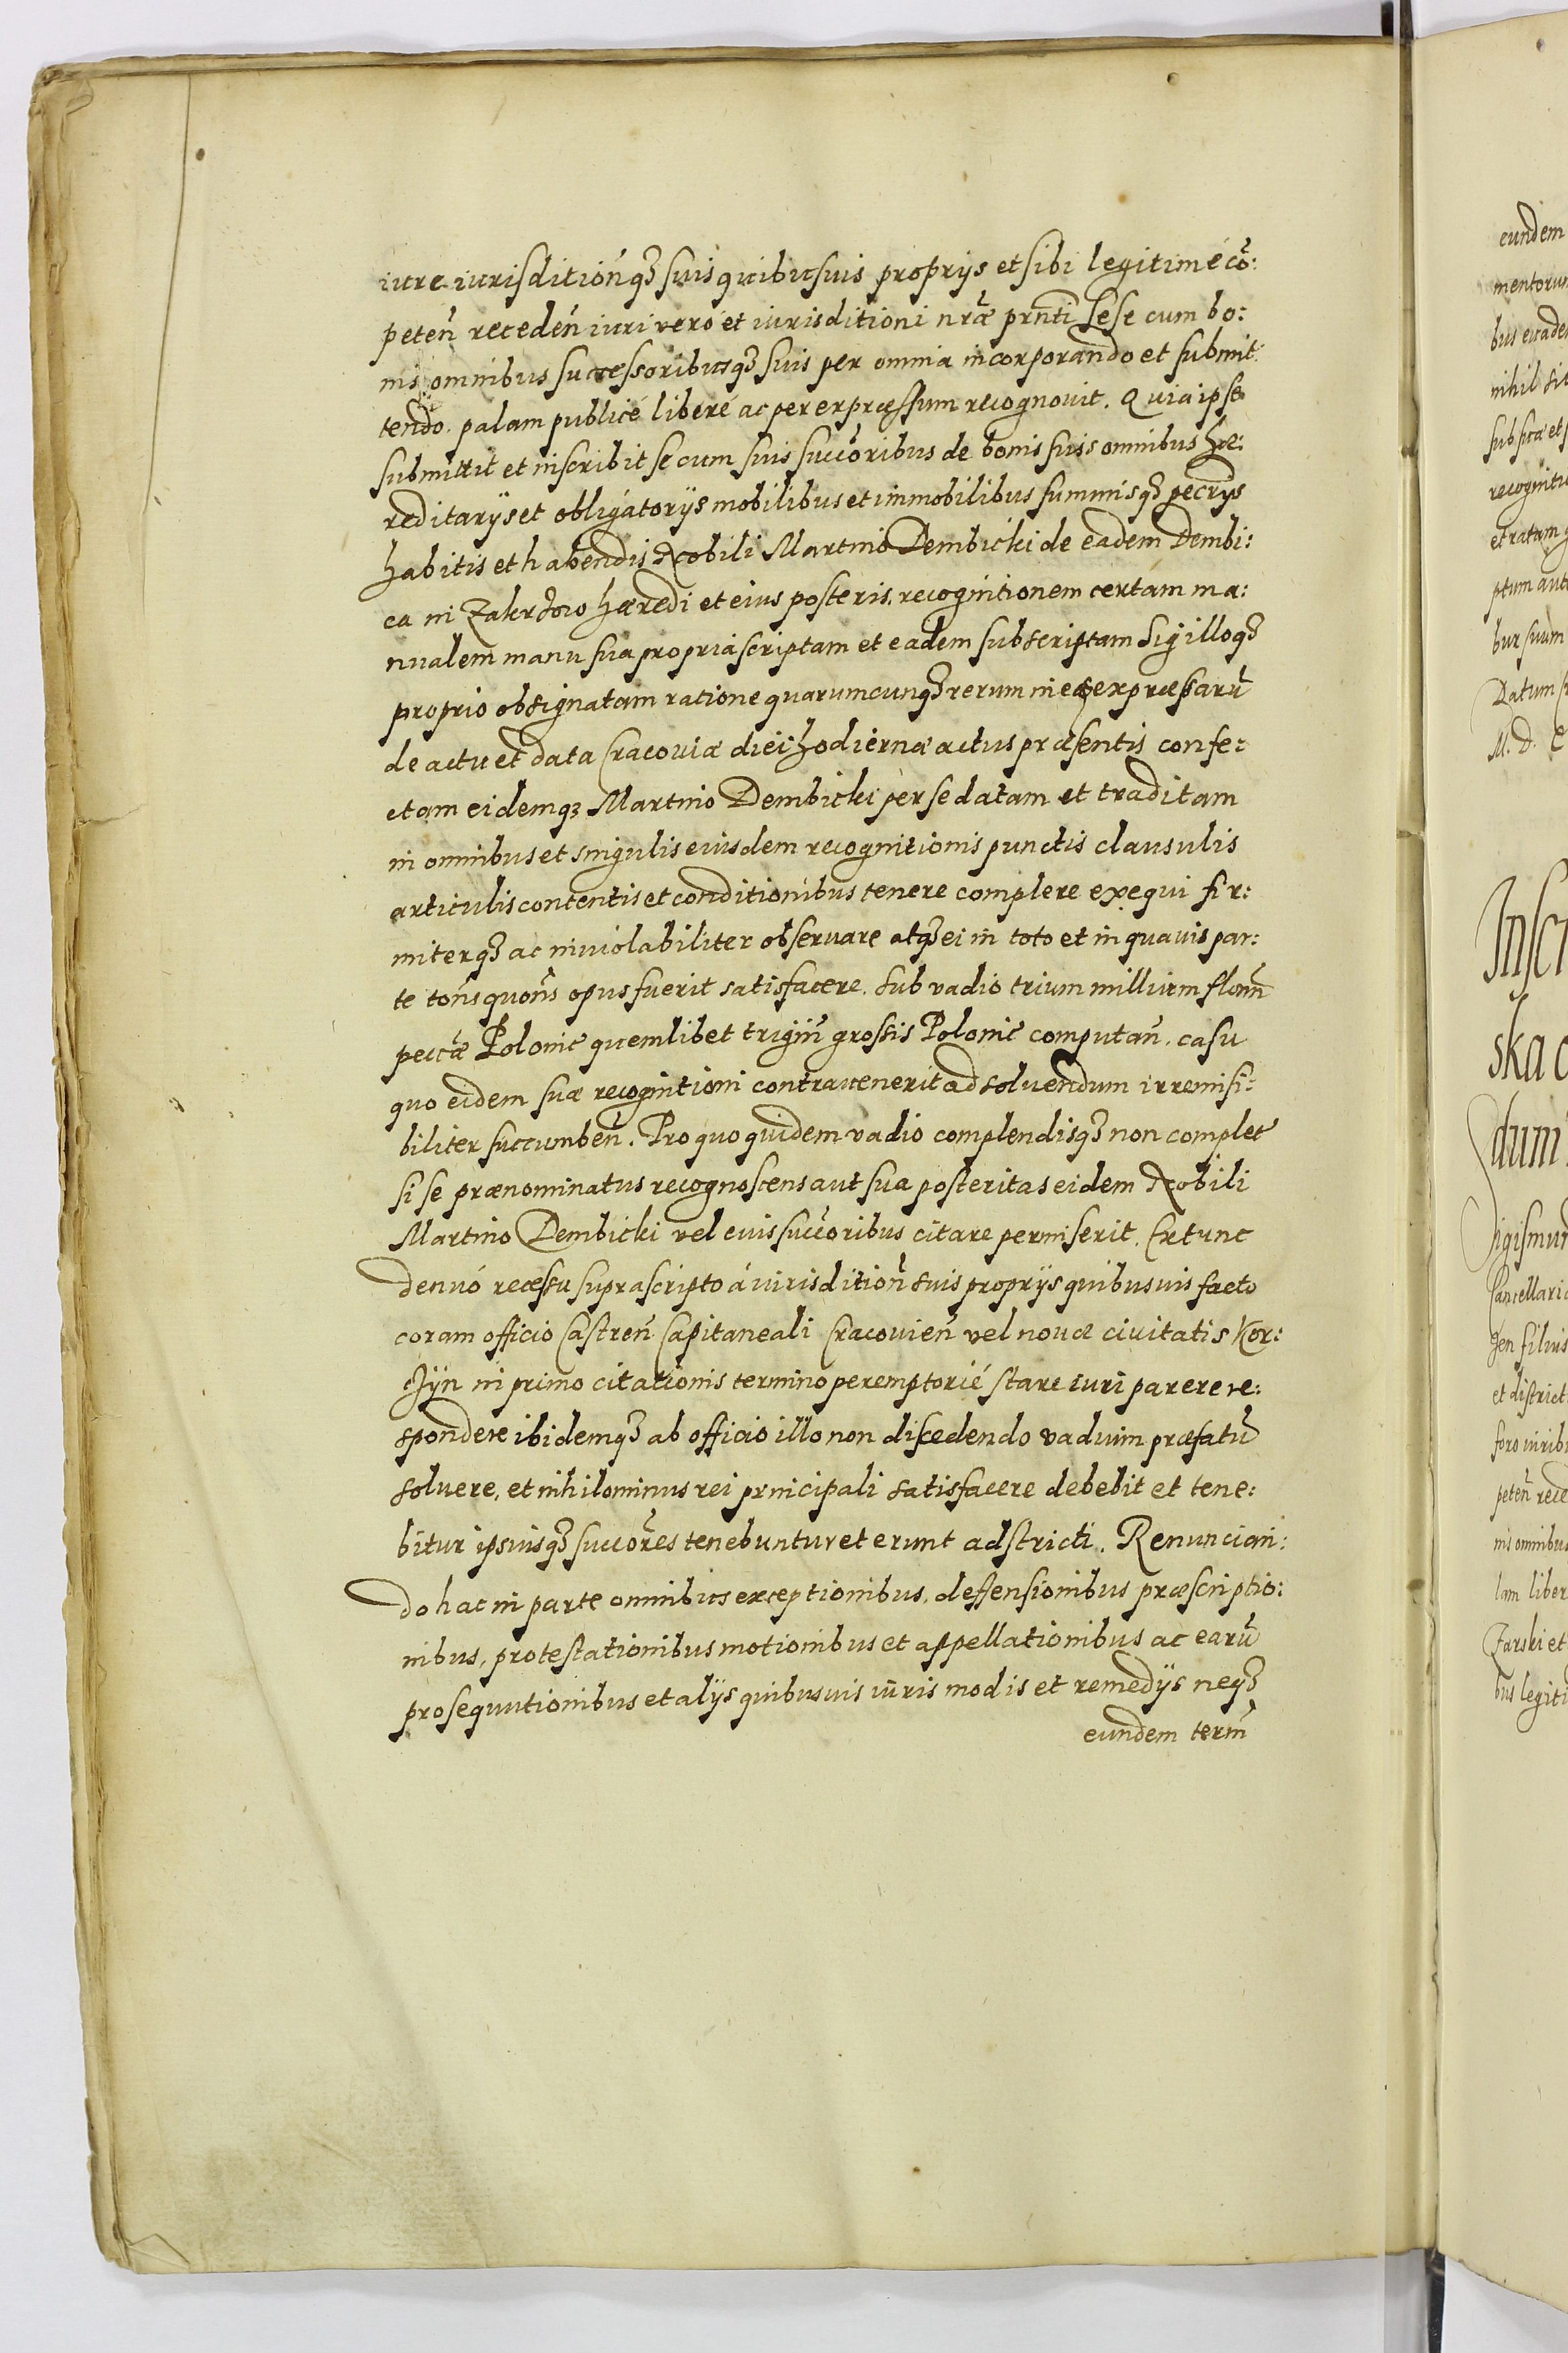 iure iurisdition̄q₃ suis quibusuis proprijs et sibi legitimé cō:
peten̄ receden̄ iuri vero et iurisditioni nr̄æ prn̄ti sese cum bo:
nis omnibus successoribusq₃ suis per omnia incorporando et submit:
tendo. palam publicé liberé ac per expræssum recognouit. Quia ipse
submittit et inscribit se cum suis succ̄oribus de bonis suis omnibus hæ:
reditarijs et obligatorijs mobilibus et immobilibus summisq₃ pecr̄ijs
habitis et habendis Nobili Martino Dembicki de eadem Dembi:
ca in Zakrzow hæredi et eius posteris. recognitionem certam ma:
nualem manu sua propria scriptam et eadem subscriptam sigilloq₃
proprio obsignatam ratione quarumcunq₃ rerum in ea expræssarū
de actu et data Cracouiæ diei hodiernæ actus præsentis confe:
ctam eidemq₃ Martino Dembicki per se datam et traditam
in omnibus et singulis eiusdem recognitionis punctis clausulis
articulis contentis et conditionibus tenere complere exequi fir:
miterq₃ ac inuiolabiliter obseruare atq₃ ei in toto et in quauis par:
te ton̄s quon̄s opus fuerit satisfacere. sub vadio trium millium floren̄
pecc̄æ Polonic̄ quemlibet trigin̄ grossis Polonic̄ computan̄. casu
quo eidem suæ recognitioni contrauenerit ad soluendum irremisi:
biliter succumben̄. Pro quo quidem vadio complendisq₃ non complet̄
si se prænominatus recognoscens aut sua posteritas eidem Nobili
Martino Dembicki vel eius succ̄oribus citare permiserit. Extunc
denuó recessu suprascripto á iurisdition̄ suis proprijs quibusuis facto
coram officio Castren̄ Capitaneali Cracouien̄ vel nouæ ciuitatis Kor:
czijn in primo citationis termino peremptorié stare iuri parere re:
spondere ibidemq₃ ab officio illo non discedendo vadium præfatū
soluere, et nihilominus rei principali satisfacere debebit et tene:
bitur ipsiusq₃ succ̄ores tenebuntur et erunt adstricti. Renuncian:
do hac in parte omnibus exceptionibus, deffensionibus præscriptio:
nibus, protestationibus motionibus et appellationibus ac earū
prosequutionibus et alijs quibusuis iuris modis et remedijs neq₃
eundem term̄
eundem
mentorum
nihil sit
recognitio
et ratam
ptum aut
bur suum
Datum
M. D.
Inscr
ska
dum
Sigismun
Cancellari
filius
et district
foro iurib
peten̄ rece
nis omnibus
lam liber
Zarski et
bus legiti